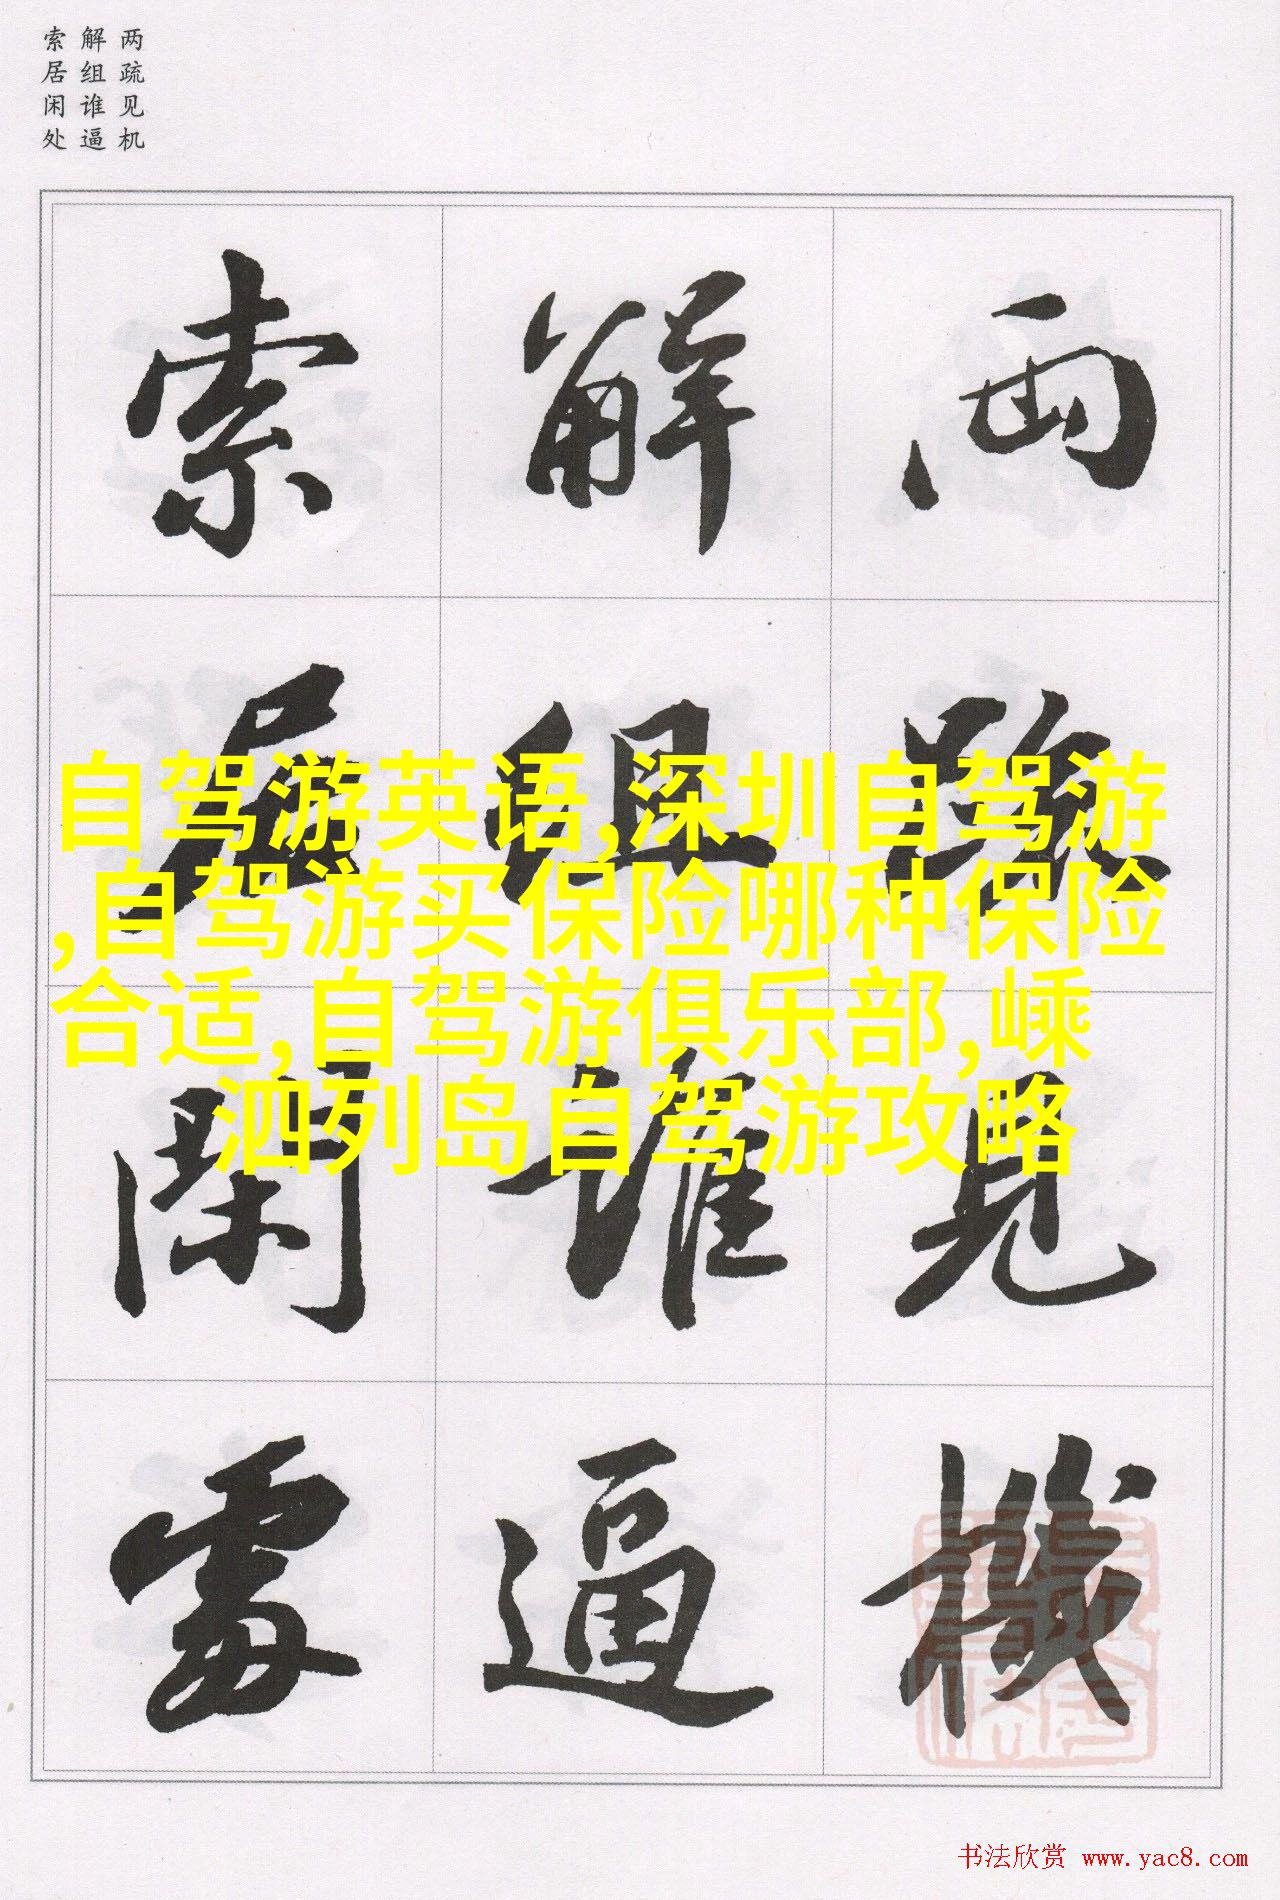 两疏见机
解组谁逼
索居闲处
兩疏見機
解組誰逼
索居閑處
自驾游英语,深圳自驾游
,自驾游买保险哪种保险
合适,自驾游俱乐部,嵊
泗列岛自驾游攻略
书法欣赏 www.yac8.com